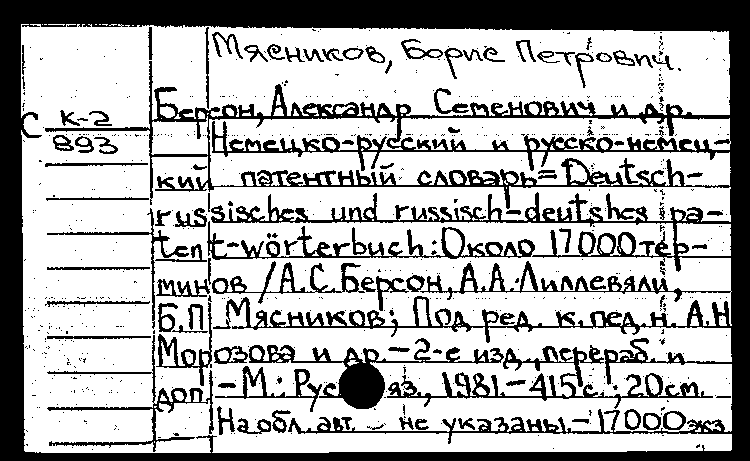 Мясников, Борис Петрович.
Берсон, Александр Семенович и др.
С К-2
893
Немецко-русский и русско-немец-
кий патентный словарь = Deutsch-
russisches und russisch-deutshes pa-
tent-wörterbuch: Около 17000 тер-
минов / А.С. Берсон, А.А. Лиллевяли,
Б.П. Мясников; Под ред. к.пед.н. А.Н
Морозова и др. – 2-е изд., перераб. и
доп. – М.: Рус яз., 1981. – 415 с.; 20 см.
На обл. авт. не указаны. – 17000 экз